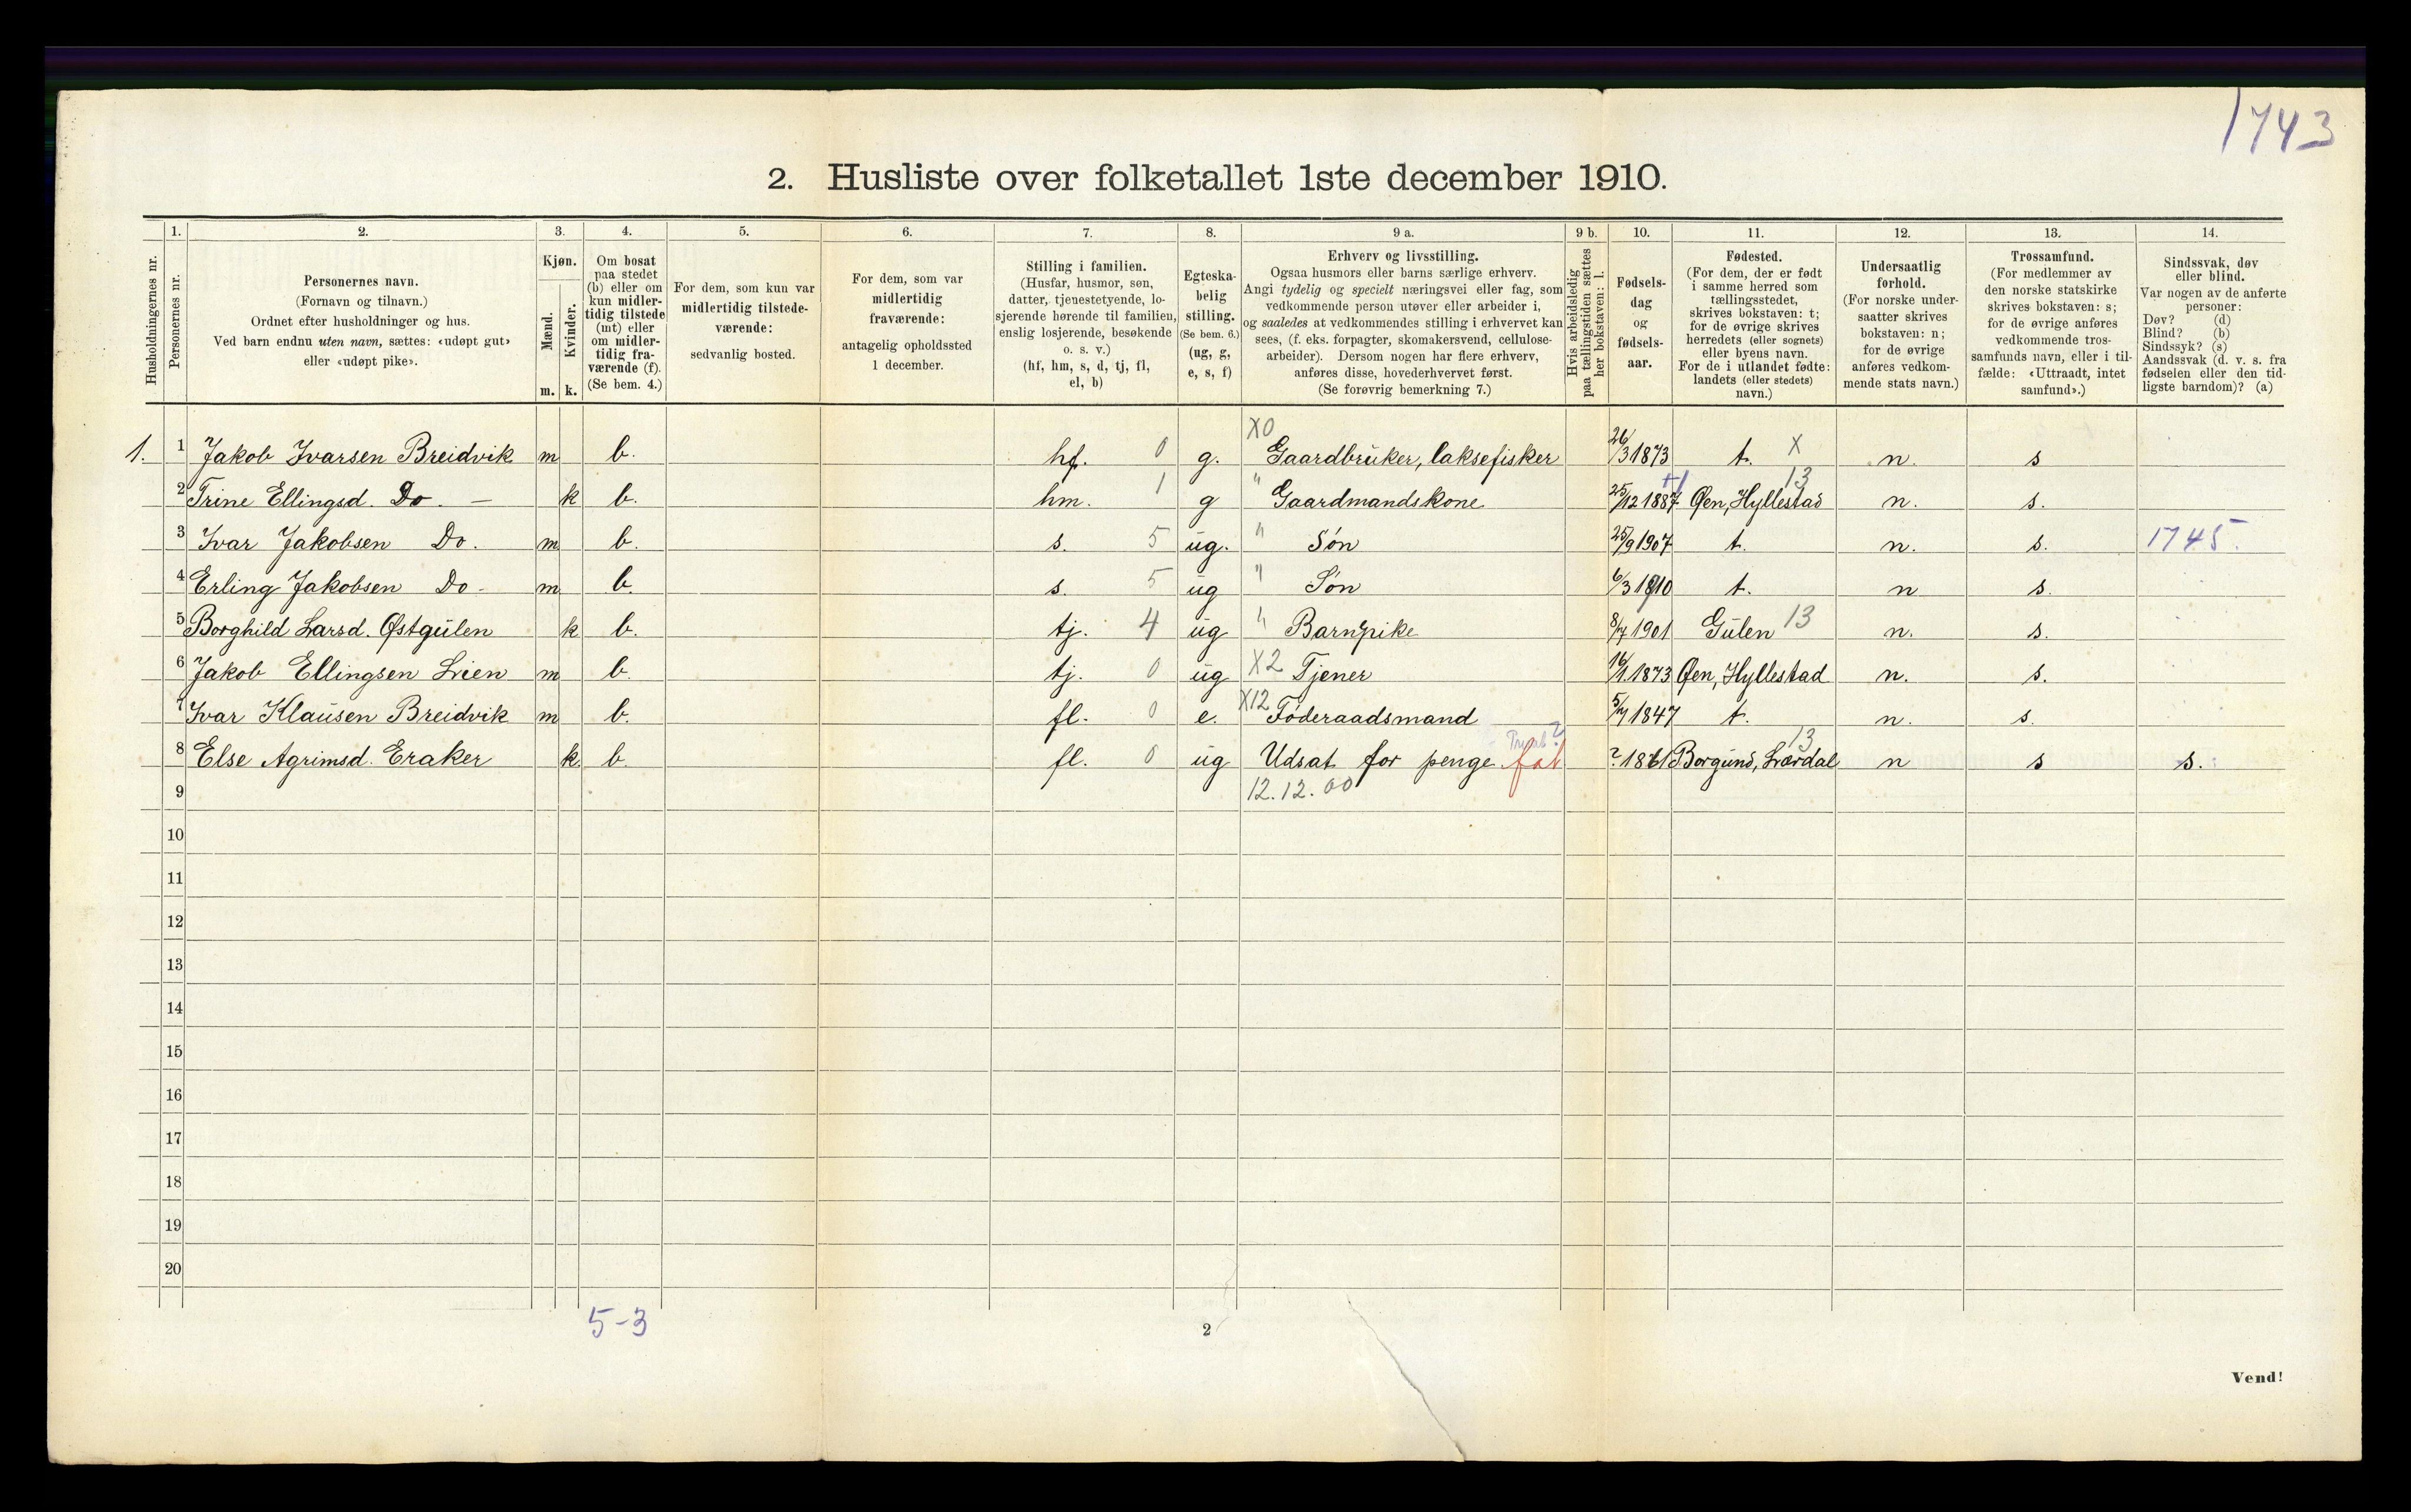 1743
2. Husliste over folketallet 1ste december 1910.
Husholdningernes nr.
1.
Personernes nr.
2.
Personernes navn.
(Fornavn og tilnavn.)
Ordnet efter husholdninger og hus.
Ved barn endnu uten navn, sættes: «udøpt gut»
eller «udøpt pike».
3.
Kjøn.
Mænd.
Kvinder.
m. k.
4.
Om bosat
paa stedet
(b) eller om
kun midler-
tidig tilstede
(mt) eller
om midler-
tidig fra-
værende (f).
(Se bem. 4.)
5.
For dem, som kun var
midlertidig tilstede-
værende:
sedvanlig bosted.
6.
For dem, som var
midlertidig
fraværende:
antagelig opholdssted
1 december.
7.
Stilling i familien.
(Husfar, husmor, søn,
datter, tjenestetyende, lo-
sjerende hørende til familien,
enslig losjerende, besøkende
o. s. v.)
(hf, hm, s, d, tj, fl,
el, b)
8.
Egteska-
belig
stilling.
(Se bem. 6.)
(ug, g,
e, s, f)
9 a.
Erhverv og livsstilling.
Ogsaa husmors eller barns særlige erhverv.
Angi tydelig og specielt næringsvei eller fag, som
vedkommende person utøver eller arbeider i,
og saaledes at vedkommendes stilling i erhvervet kan
sees, (f. eks. forpagter, skomakersvend, cellulose-
arbeider). Dersom nogen har flere erhverv,
anføres disse, hovederhvervet først.
(Se forøvrig bemerkning 7.)
9 b.
Hvis arbeidsledig
paa tællingstiden sættes
her bokstaven: l.
10.
Fødsels-
dag
og
fødsels-
aar.
11.
Fødested.
(For dem, der er født
i samme herred som
tællingsstedet,
skrives bokstaven: t;
for de øvrige skrives
herredets (eller sognets)
eller byens navn.
For de i utlandet fødte:
landets (eller stedets)
navn.)
12.
Undersaatlig
forhold.
(For norske under-
saatter skrives
bokstaven: n;
for de øvrige
anføres vedkom-
mende stats navn.)
13.
Trossamfund.
(For medlemmer av
den norske statskirke
skrives bokstaven: s;
for de øvrige anføres
vedkommende tros-
samfunds navn, eller i til-
fælde: «Uttraadt, intet
samfund».)
14.
Sindssvak, døv
eller blind.
Var nogen av de anførte
personer:
Døv? (d)
Blind? (b)
Sindssyk? (s)
Aandssvak (d. v. s. fra
fødselen eller den tid-
ligste barndom)? (a)
1. 1 Jakob Ivarsen Breidvik m b. hf. 0 g. X0 Gaardbruker, laksefisker 26/3 1873 t. X n. s
2 Trine Ellingsd. Do. — k b. hm. 1 g " Gaardmandskone 25/12 1887 Øen, Hyllestad 13 n. s.
3 Ivar Jakobsen Do. m b. s. 5 ug. " Søn 25/9 1907 t. n. s. 1745.
4 Erling Jakobsen Do - m b. s. 5 ug " Søn 6/3 1910 t. n s.
5 Borghild Larsd. Østgulen k b. tj. 4 ug " Barnpike 8/7 1901 Gulen 13 n. s.
6 Jakob Ellingsen Lien m b. tj. 0 ug X2 Tjener 16/1 1873 Øen, Hyllestad n. s.
7 Ivar Klausen Breidvik m b. fl. 0 e. X12 Føderaadsmand 5/7 1847 t. n. s.
8 Else Agrimsd. Eraker k b fl. 0 ug Udsat for penge fat ? 1861 Borgund, Lærdal 13 n s s.
9 12.12.00
10
11
12
13
14
15
16
17
18
19
20
5-3
2
Vend!